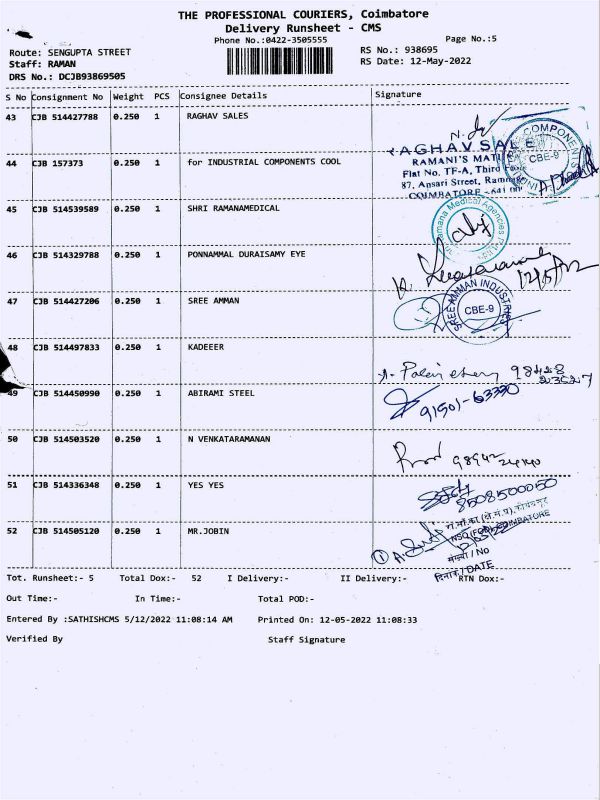 THE PROFESSIONAL COURIERS, Coimbatore
Delivery Runsheet - CMS
Phone No.:0422-3505555 Page No.:5
Route: SENGUPTA STREET RS No.: 938695
Staff: RAMAN RS Date: 12-May-2022
DRS No.: DCJB93869505
S No Consignment No Weight PCS Consignee Details Signature
43 CJB 514427788 0.250 1 RAGHAV SALES
AGHAV SALE
RAMANI'S
Flat No. TF-A, Third
87, Ansari Street,
COIMBATORE
COMPONENT
CBE-9
44 CJB 157373 0.250 1 for INDUSTRIAL COMPONENTS COOL
45 CJB 514539589 0.250 1 SHRI RAMANAMEDICAL
Ramana Medical Agencies
46 CJB 514329788 0.250 1 PONNAMMAL DURAISAMY EYE
12/5/22
47 CJB 514427206 0.250 1 SREE AMMAN
SREE AMMAN INDUSTRIES
CBE-9
48 CJB 514497833 0.250 1 KADEEER
49 CJB 514450990 0.250 1 ABIRAMI STEEL
91501-63330
50 CJB 514503520 0.250 1 N VENKATARAMANAN
51 CJB 514336348 0.250 1 YES YES
8508500050
52 CJB 514505120 0.250 1 MR.JOBIN
COIMBATORE
संख्या / No
दिनांक / DATE
Tot. Runsheet:- 5 Total Dox:- 52 I Delivery:- II Delivery:- RTN Dox:-
Out Time:- In Time:- Total POD:-
Entered By :SATHISHCMS 5/12/2022 11:08:14 AM Printed On: 12-05-2022 11:08:33
Verified By Staff Signature